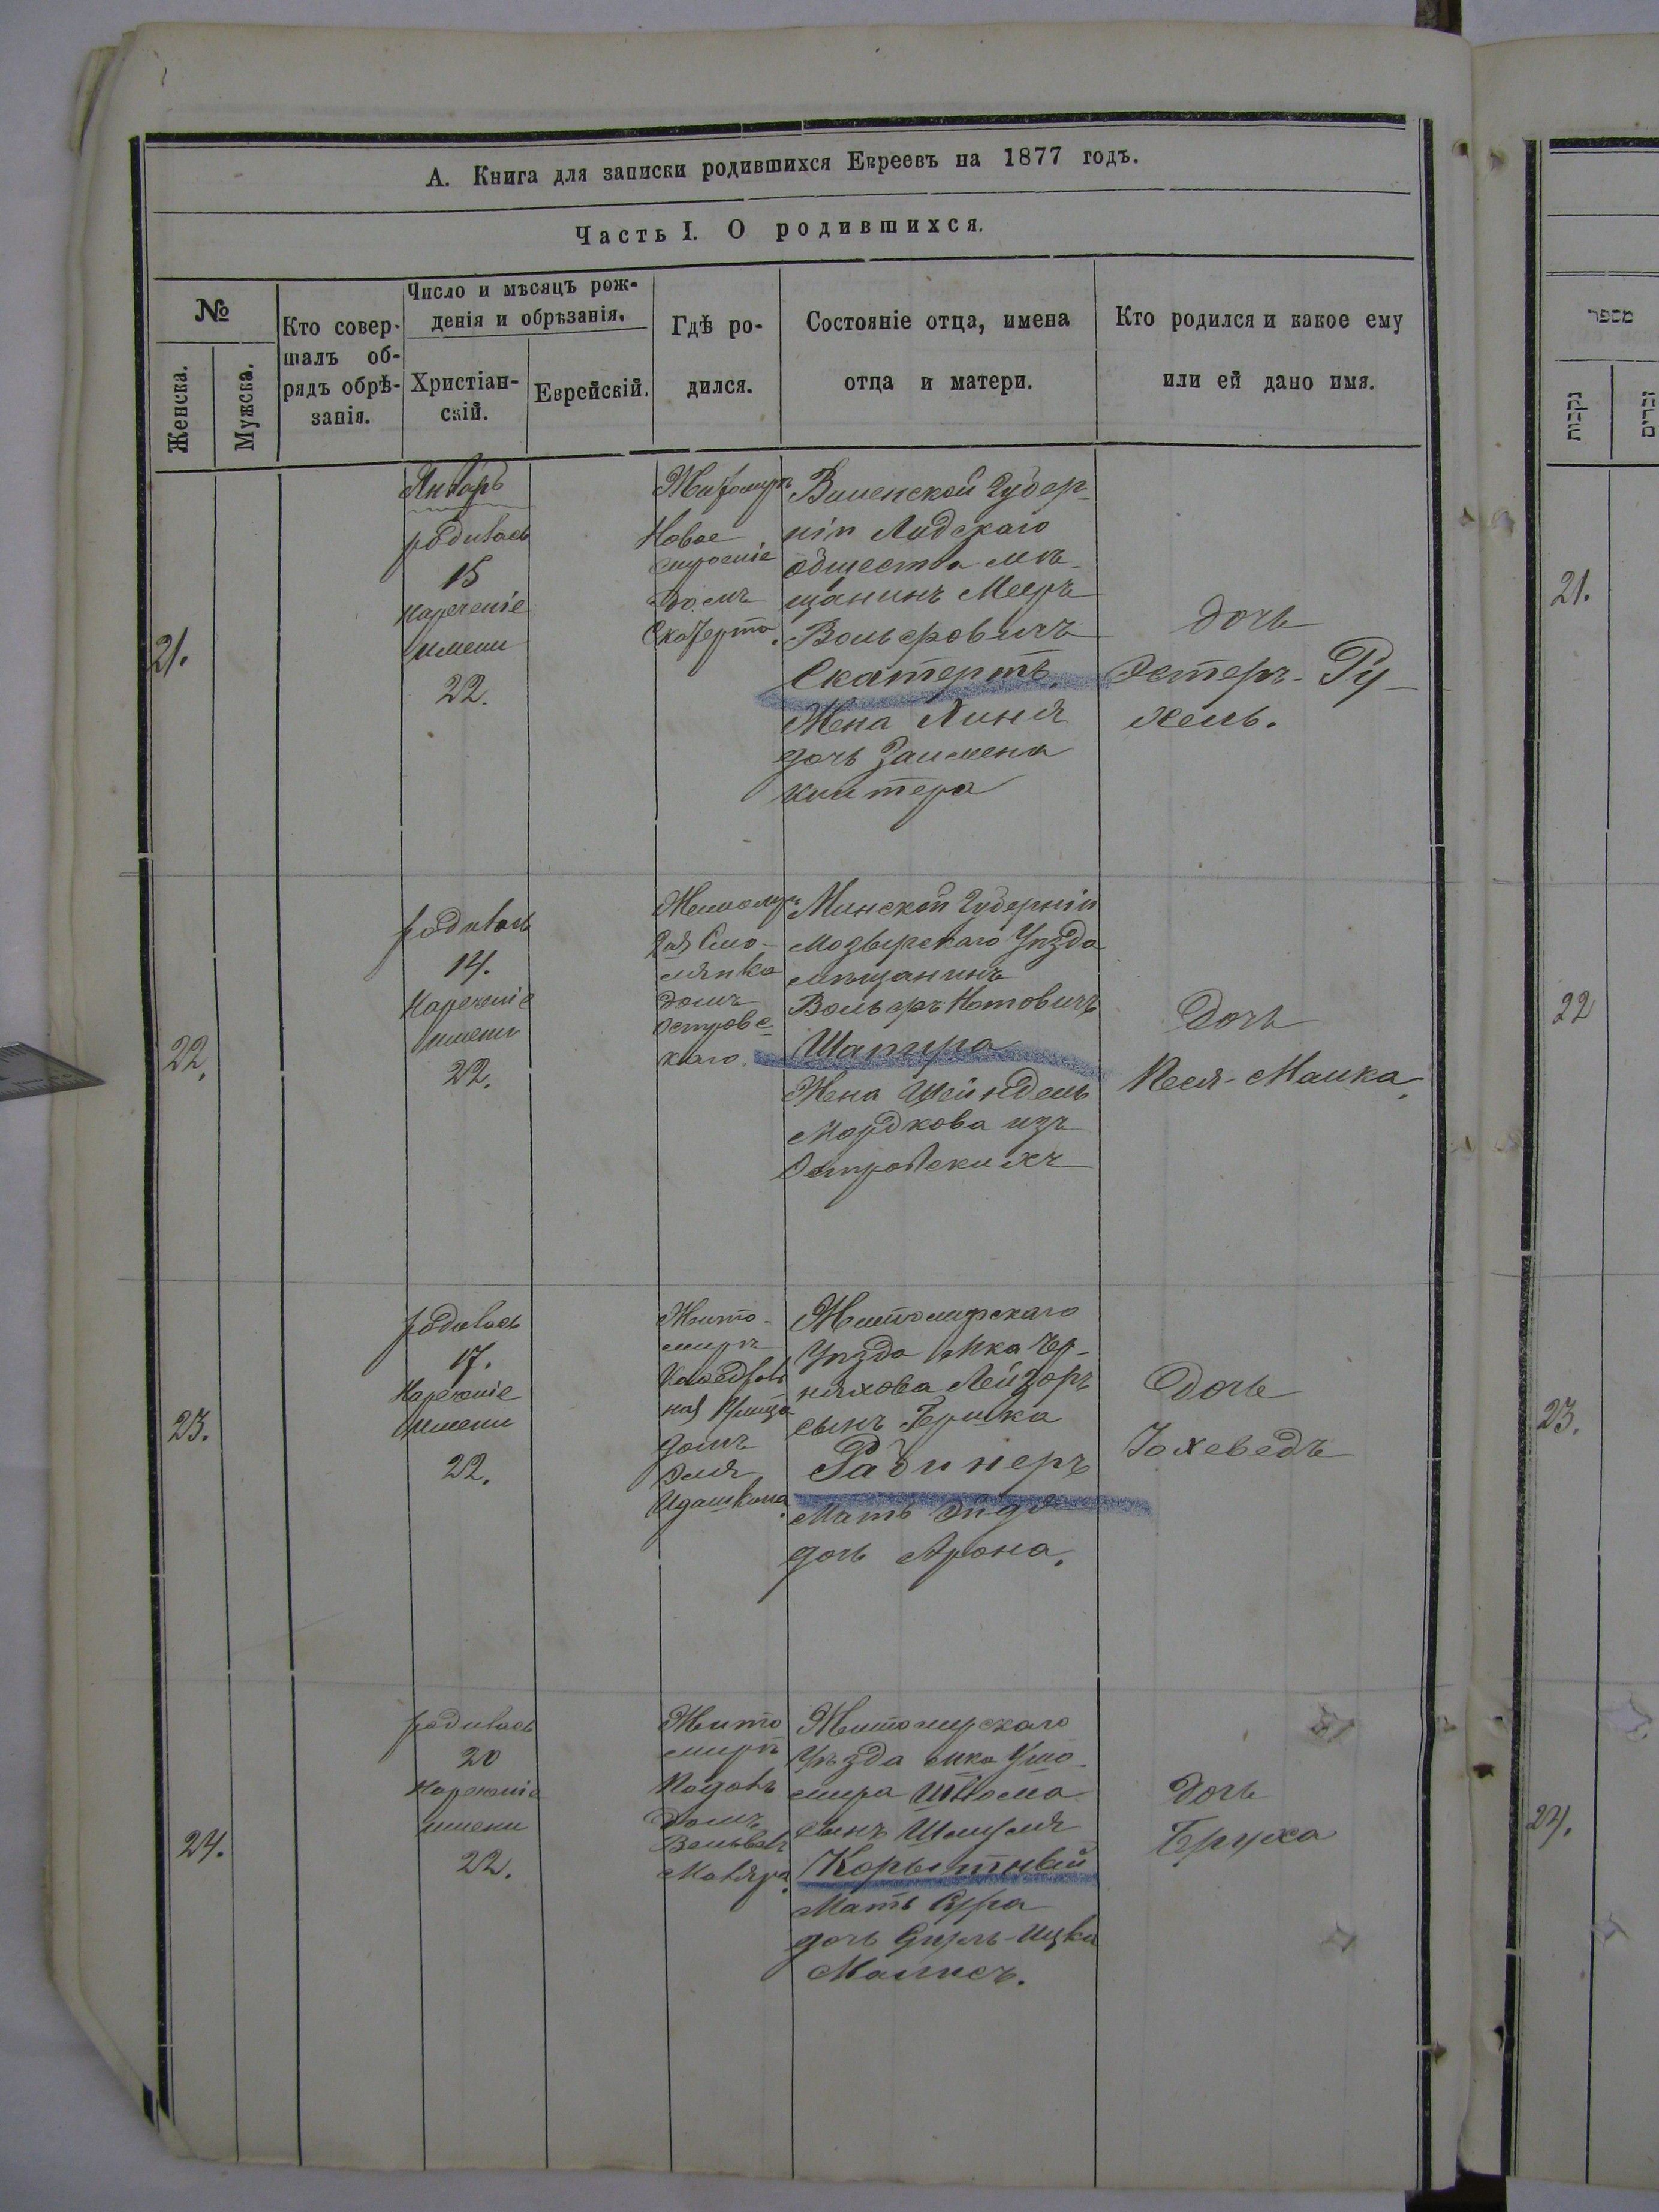 А. Книга для записки родившихся Евреевъ на 1877 годъ.
Часть I. О родившихся.
№
Женска.
Мужска.
Кто совер-
шалъ об-
рядъ обрѣ-
занія.
Число и мѣсяцъ рож-
денія и обрѣзанія.
Христіан-
скій.
Еврейскій.
Гдѣ ро-
дился.
Состояніе отца, имена
отца и матери.
Кто родился и какое ему
или ей дано имя.
21.
Январь
родилась
15
Нареченіе
имени
22.
Житомиръ
Новое
строеніе
домъ
Скатерта.
Виленской Губер-
ніи Лидскаго
общества мѣ-
щанинъ Мееръ
Вольфовичъ
Скатертъ.
Жена Линя
дочь Залмена
дочь
Эстеръ-Ру-
хель.
22.
родилась
14.
Нареченіе
имени
22.
Житомиръ
домъ
Островс-
каго.
Минской Губерніи
Мозырскаго Уѣзда
мѣщанинъ
Вольфъ Нотовичъ
Шапира
Жена Шейндель
Мордкова изъ
Островскихъ
Дочь
Песя-Малка.
23.
родилась
17.
Нареченіе
имени
22.
Жито-
миръ
Кафедраль
ная Улица
домъ
Эля
Житомирскаго
Уѣзда мка Чер-
няхова Лейзоръ
сынъ Гершка
Рабинеръ
Мать
дочь Арона.
Дочь
Іохеведъ
24.
родилась
20
Нареченіе
имени
22.
Жито
миръ
домъ
Маляра.
Житомирскаго
Уѣзда мка Ушо-
мира Шлома
сынъ Шмуля
Корытный
Мать Сура
дочь Сруль-Ицка
Малисъ.
Дочь
Бруха
מספר
נקבות
זכרים
21.
22
23.
24.